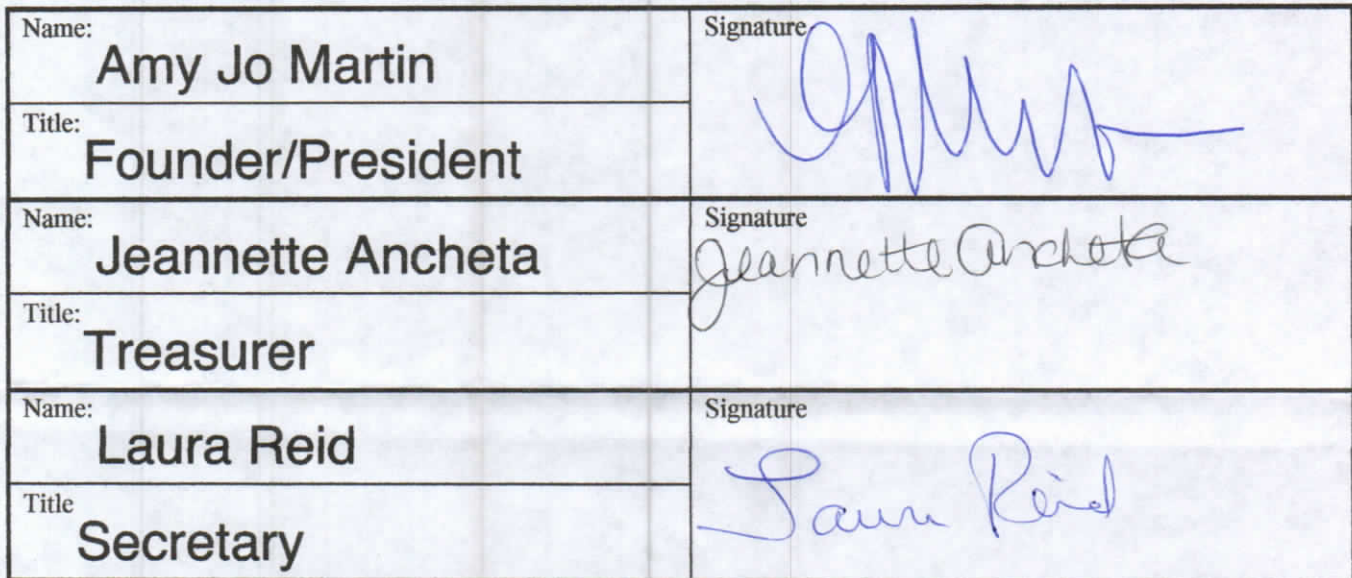 Name:
Amy Jo Martin
Signature
Title:
Founder/President
Name:
Jeannette Ancheta
Signature
Jeannette Ancheta
Title:
Treasurer
Name:
Laura Reid
Signature
Laura Reid
Title
Secretary